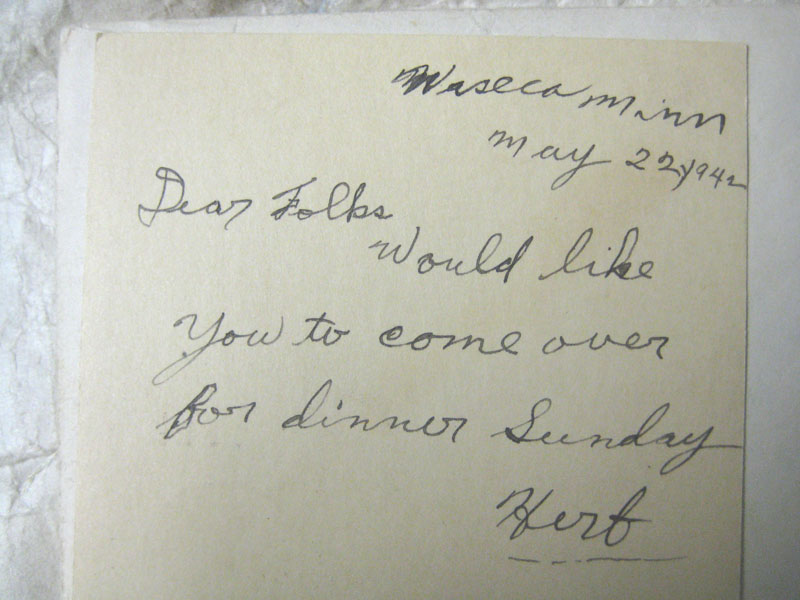 Waseca Minn
May 22, 1942
Dear Folks
Would like
You to come over
for dinner Sunday
Herb